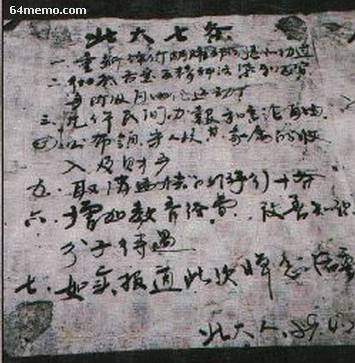 64memo.com
北大七条
一.重新评价胡耀邦的是非功过
二.彻底否定反精神污染和反资
三.允许民间办报和言论自由
四.公布领导人及其家属的收
入及财产
五.取消北京的游行十条
六.增加教育经费,改善知识
分子待遇
七.如实报道此次悼念活动
北大人